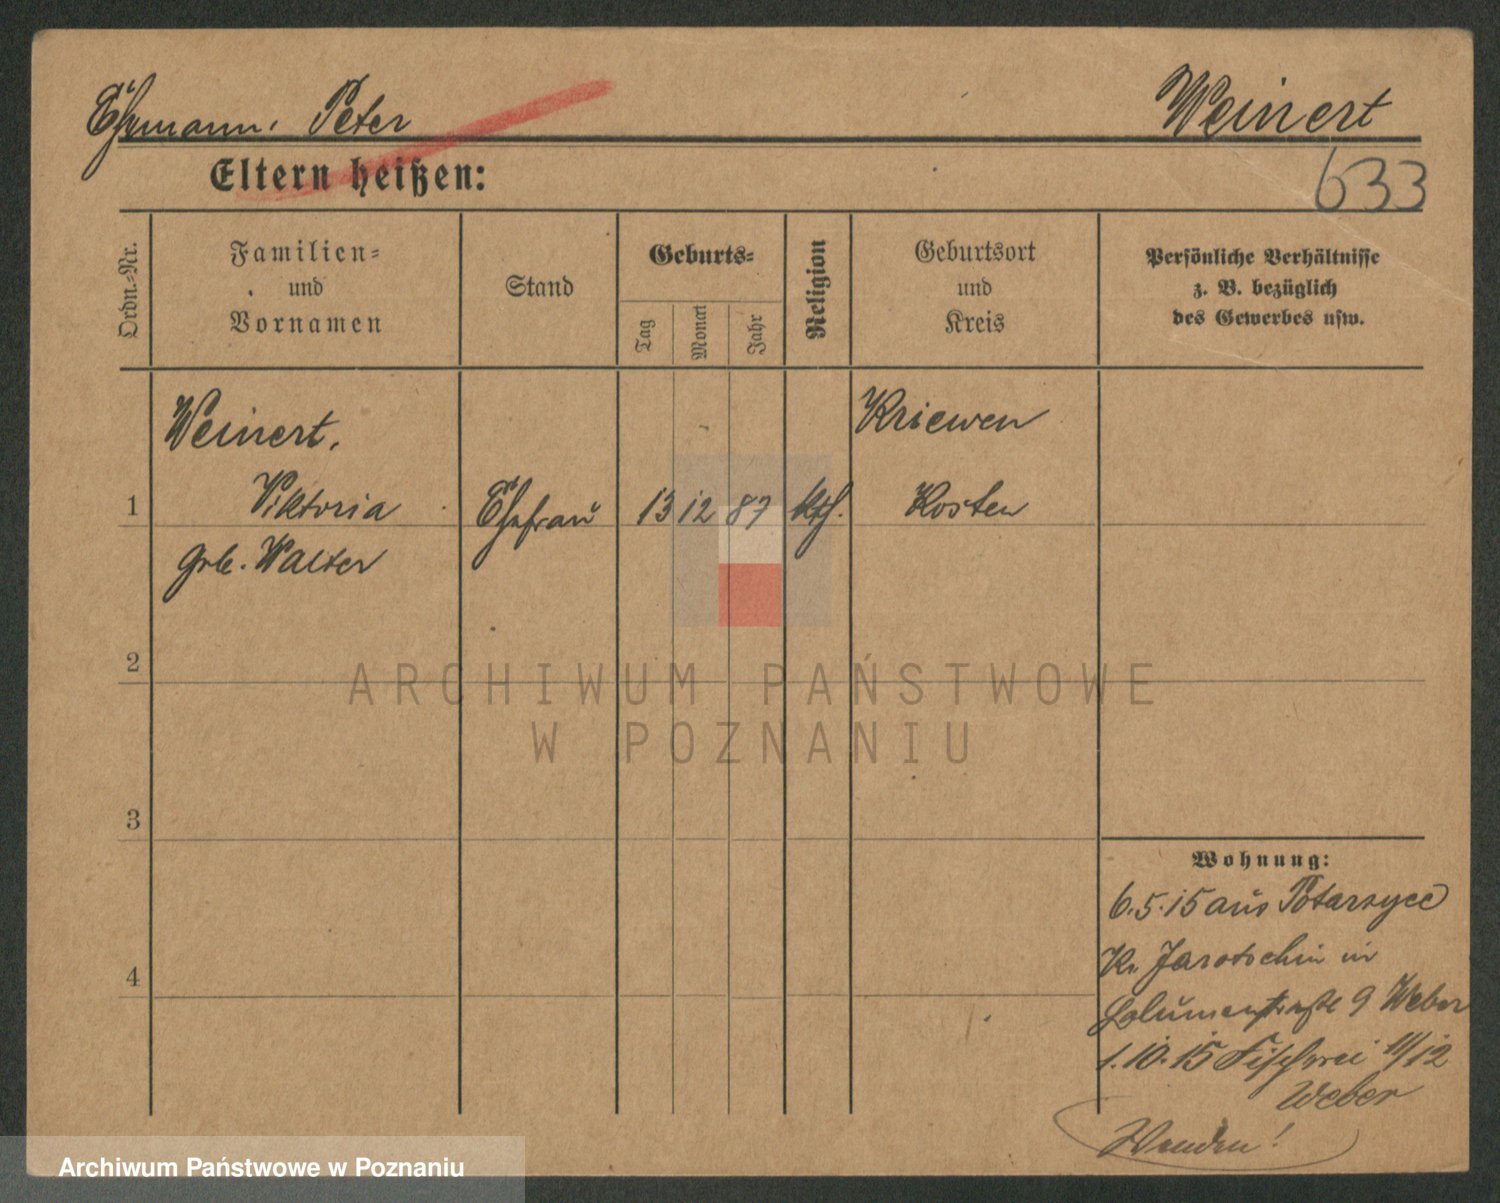 Ehemann: Peter Weinert
Eltern heißen: 633
Ordn.-Nr.
Familien-
und
Vornamen
Stand
Geburts-
Tag
Monat
Jahr
Religion
Geburtsort
und
Kreis
Persönliche Verhältnisse
z. B. bezüglich
des Gewerbes usw.
Weinert, Kriewen
1 Viktoria Ehefrau 13 12 87 kth. Kosten
geb. Walter
2
ARCHIWUM PAŃSTWOWE
W POZNANIU
3
Wohnung:
6.5.15 aus Potarzyce
4
Kr. Jarotschin in
9 Weber
1.10.15 Fischerei 11/12
Weber
Wenden!
Archiwum Państwowe w Poznaniu